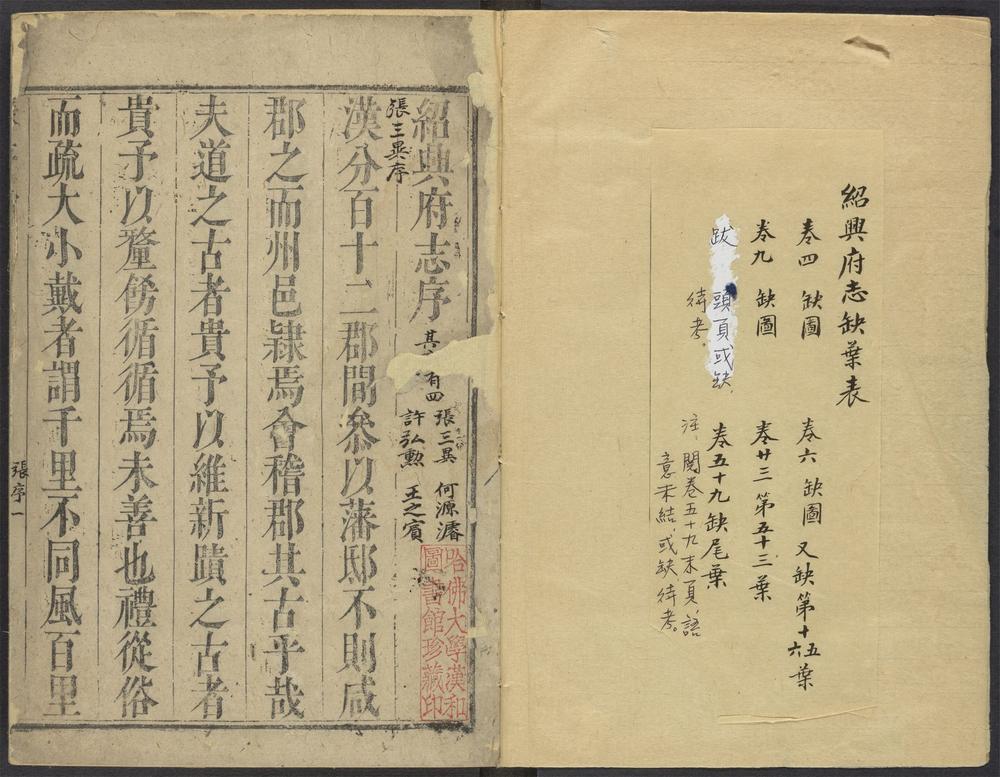 紹興府志缺葉表
卷四 缺圖 卷六 缺圖 又缺第十五六葉
卷九 缺圖 卷廿三 第五十三葉
跋 頭頁或缺 卷五十九缺尾葉
待考
注、閱卷五十九末頁、語
意未結、或缺、待考。
紹興府志序
其 有四 張三異 何源濬
許弘勳 王之賓
張三異序
漢分百十二郡間叅以藩邸不則咸
郡之而州邑隷焉會稽郡其古乎哉
夫道之古者貴予以維新蹟之古者
貴予以釐飭循循焉未善也禮從俗
而疏大小戴者謂千里不同風百里
張序一
哈佛大學漢和
圖書館珍藏印